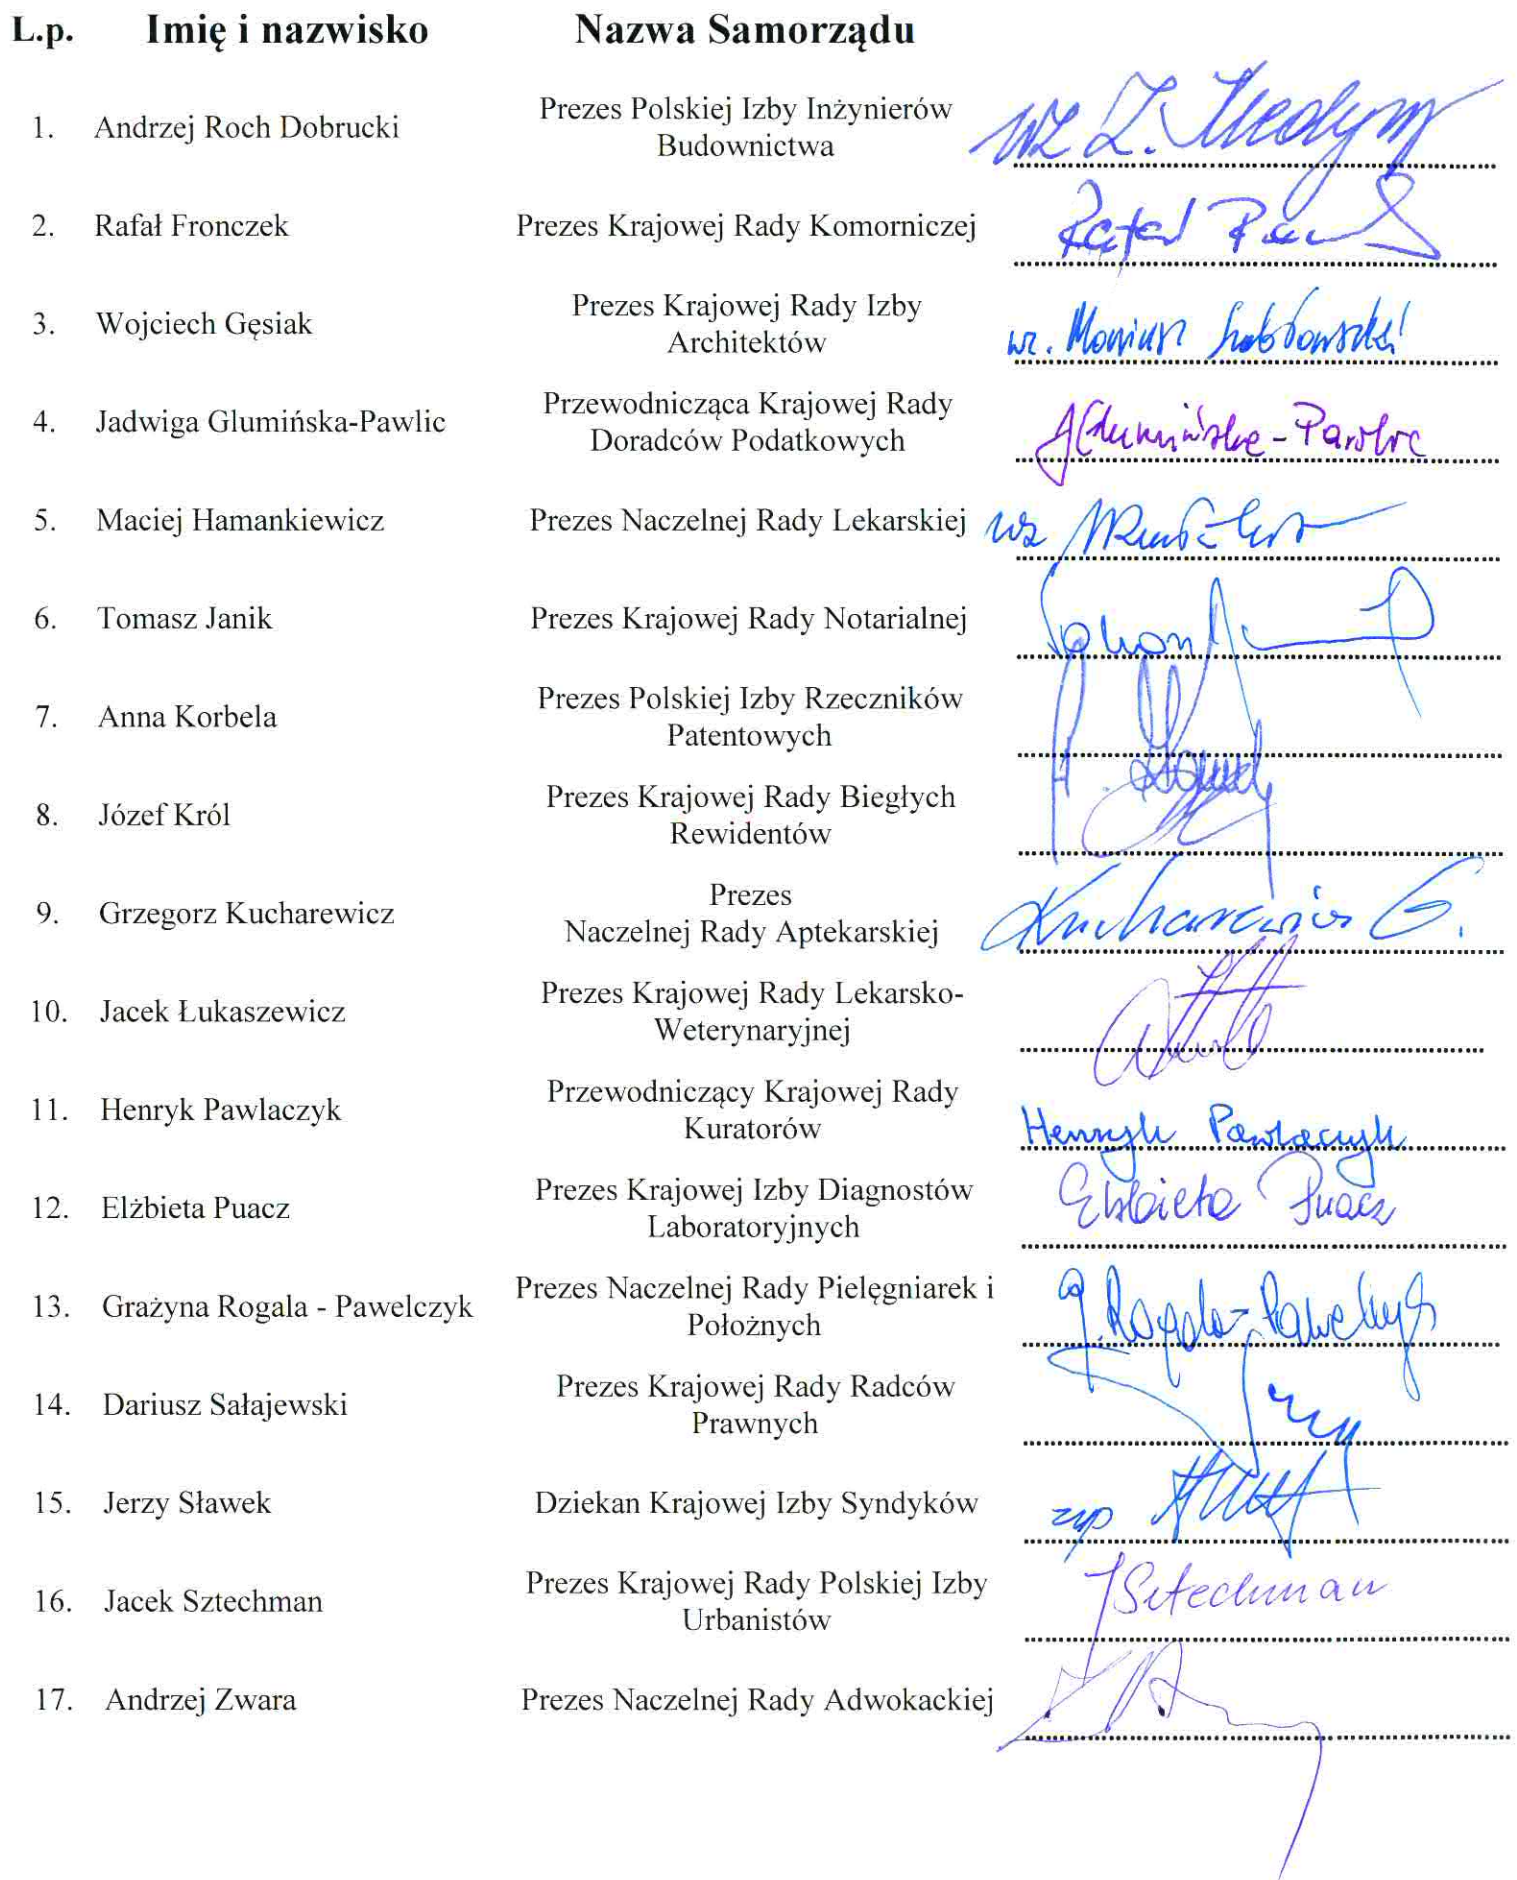 L.p. Imię i nazwisko Nazwa Samorządu
1. Andrzej Roch Dobrucki Prezes Polskiej Izby Inżynierów
Budownictwa
wz Z.
2. Rafał Fronczek Prezes Krajowej Rady Komorniczej Rafał
3. Wojciech Gęsiak Prezes Krajowej Rady Izby
Architektów
wz. Mariusz
4. Jadwiga Glumińska-Pawlic Przewodnicząca Krajowej Rady
Doradców Podatkowych
JGlumińska-Pawlic
5. Maciej Hamankiewicz Prezes Naczelnej Rady Lekarskiej wz
6. Tomasz Janik Prezes Krajowej Rady Notarialnej
7. Anna Korbela Prezes Polskiej Izby Rzeczników
Patentowych
8. Józef Król Prezes Krajowej Rady Biegłych
Rewidentów
9. Grzegorz Kucharewicz Prezes
Naczelnej Rady Aptekarskiej
Kucharewicz G.
10. Jacek Łukaszewicz Prezes Krajowej Rady Lekarsko-
Weterynaryjnej
11. Henryk Pawlaczyk Przewodniczący Krajowej Rady
Kuratorów
Henryk Pawlaczyk
12. Elżbieta Puacz Prezes Krajowej Izby Diagnostów
Laboratoryjnych
Elżbieta Puacz
13. Grażyna Rogala - Pawelczyk Prezes Naczelnej Rady Pielęgniarek i
Położnych
G. Rogala-Pawelczyk
14. Dariusz Sałajewski Prezes Krajowej Rady Radców
Prawnych
15. Jerzy Sławek Dziekan Krajowej Izby Syndyków zup
16. Jacek Sztechman Prezes Krajowej Rady Polskiej Izby
Urbanistów
JSztechman
17. Andrzej Zwara Prezes Naczelnej Rady Adwokackiej